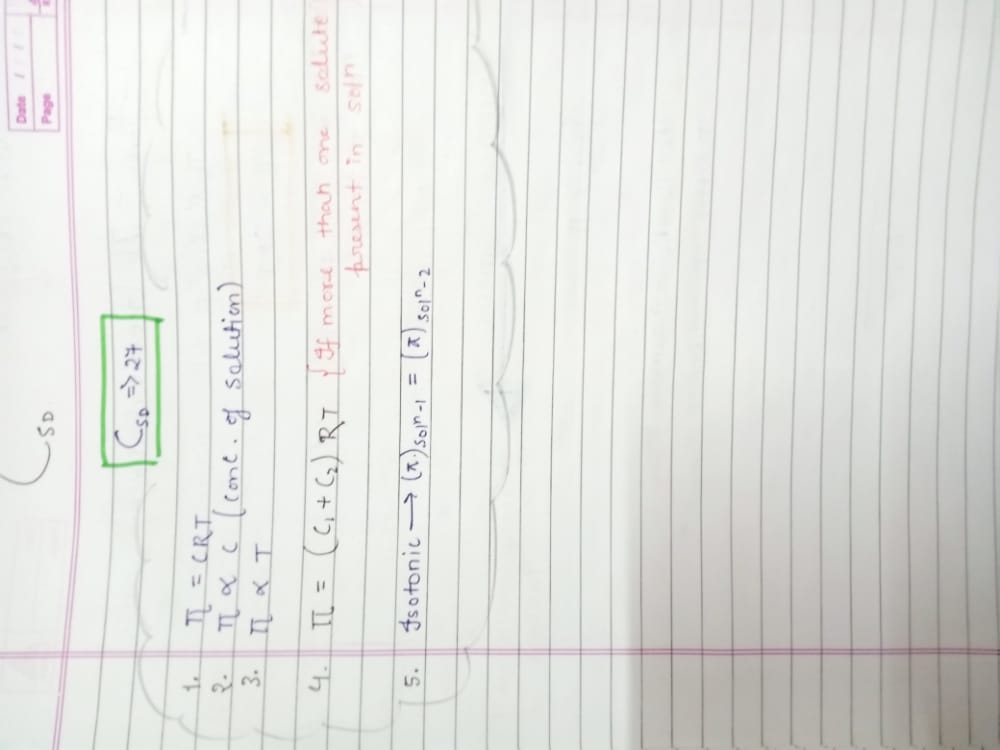 Date
Page
C_SD
C_SD => 27
1. π = CRT
2. π ∝ C (conc. of solution)
3. π ∝ T
4. π = (C₁ + C₂) RT {If more than one solute
present in solⁿ
5. Isotonic → (π)solⁿ-1 = (π)solⁿ-2